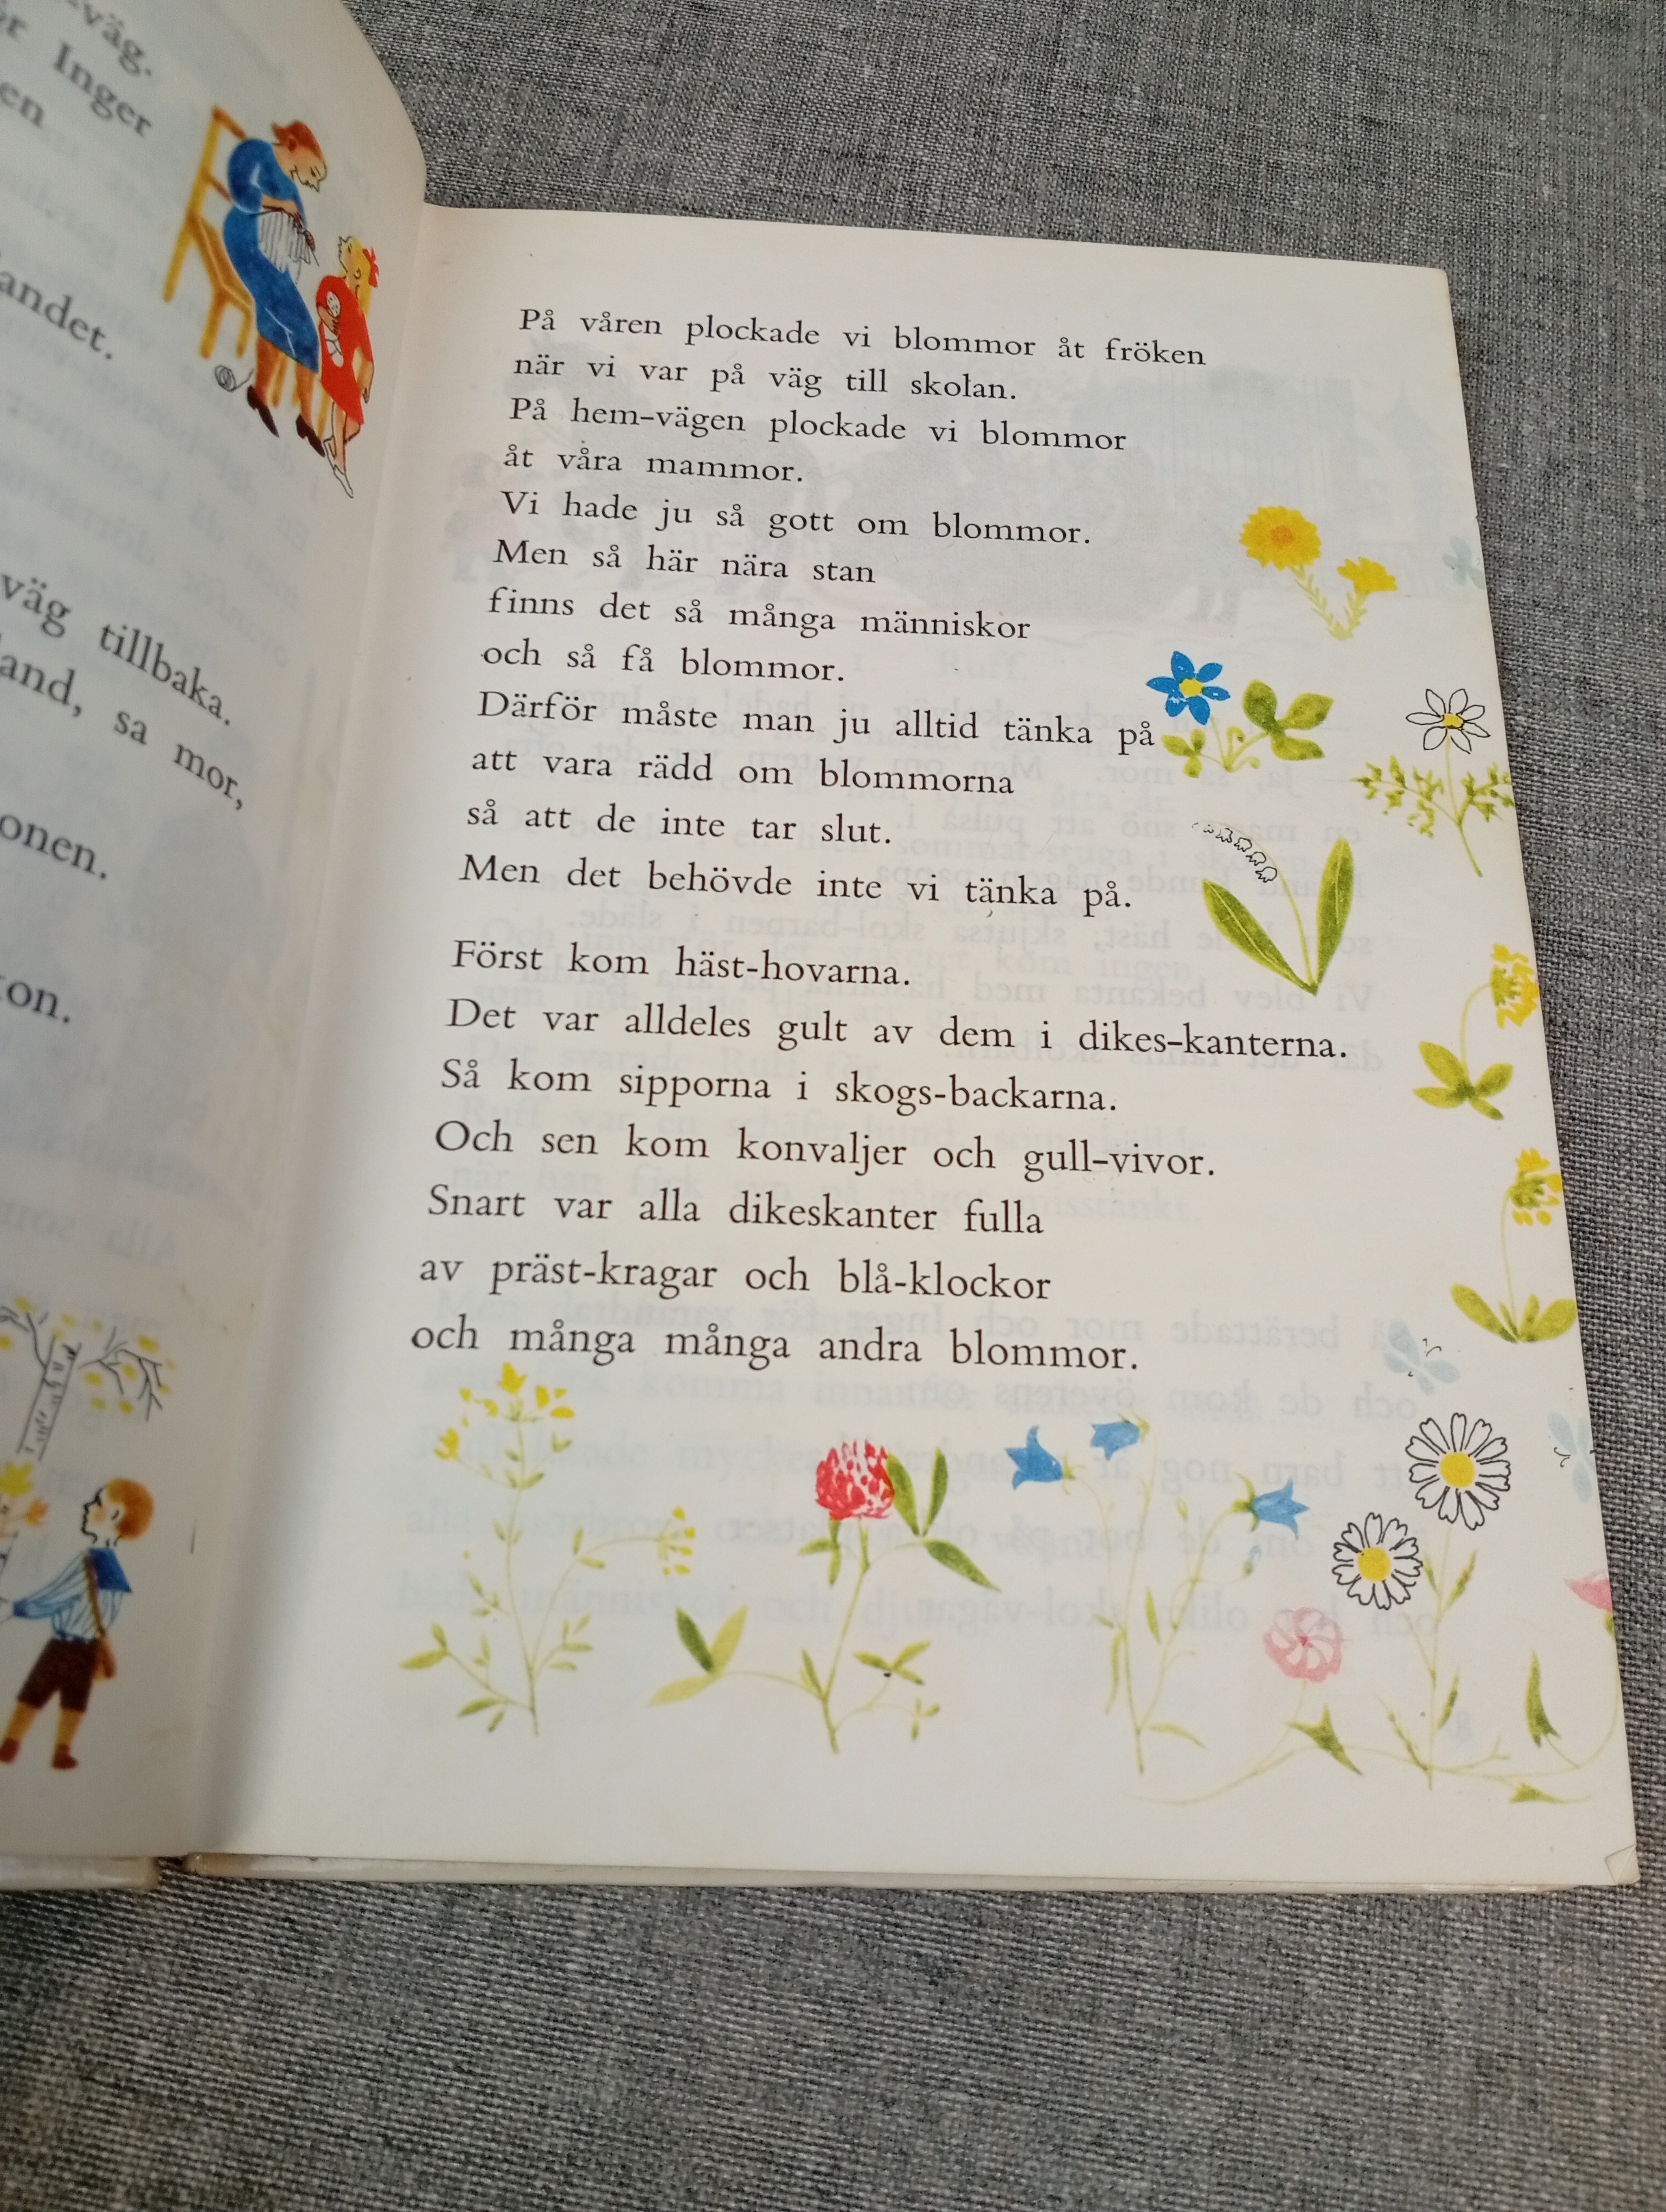 väg.
Inger
en
andet.
väg tillbaka.
and, sa mor,
onen.
on.
På våren plockade vi blommor åt fröken
när vi var på väg till skolan.
På hem-vägen plockade vi blommor
åt våra mammor.
Vi hade ju så gott om blommor.
Men så här nära stan
finns det så många människor
och så få blommor.
Därför måste man ju alltid tänka på
att vara rädd om blommorna
så att de inte tar slut.
Men det behövde inte vi tänka på.
Först kom häst-hovarna.
Det var alldeles gult av dem i dikes-kanterna.
Så kom sipporna i skogs-backarna.
Och sen kom konvaljer och gull-vivor.
Snart var alla dikeskanter fulla
av präst-kragar och blå-klockor
och många många andra blommor.